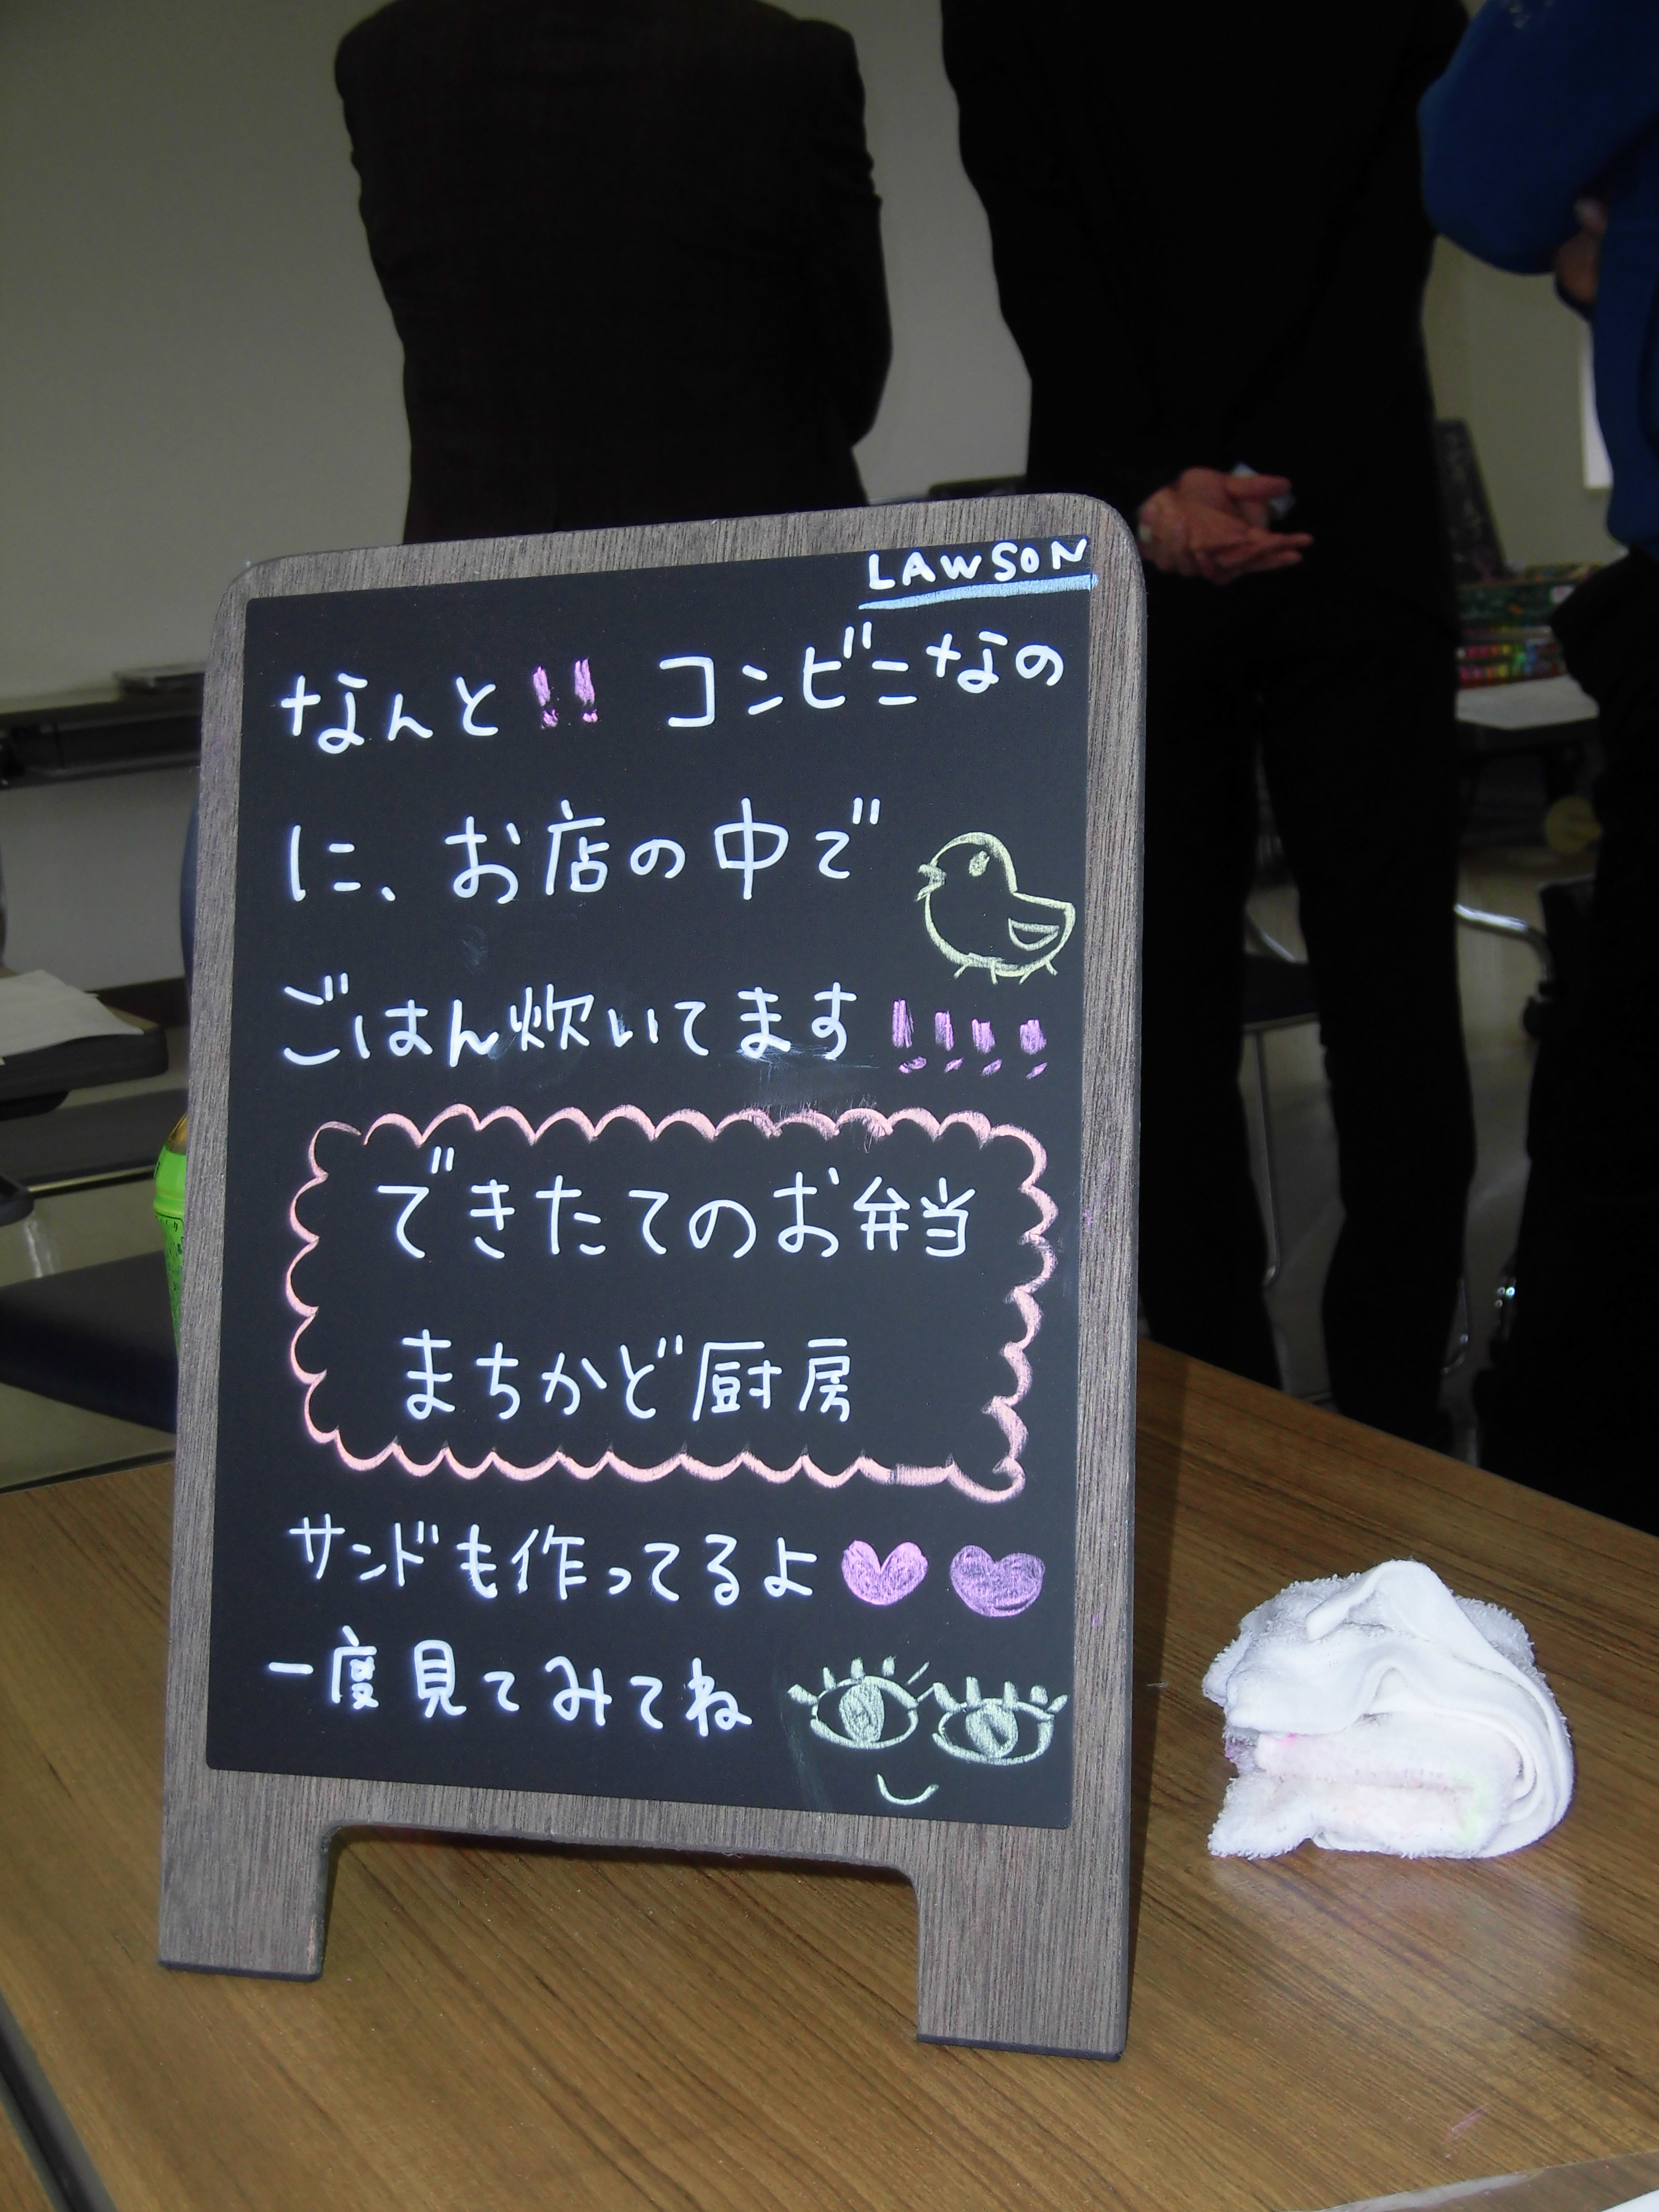 LAWSON
なんと!! コンビニなの
に、お店の中で
ごはん炊いてます!!!!
できたてのお弁当
まちかど厨房
サンドも作ってるよ
一度見てみてね